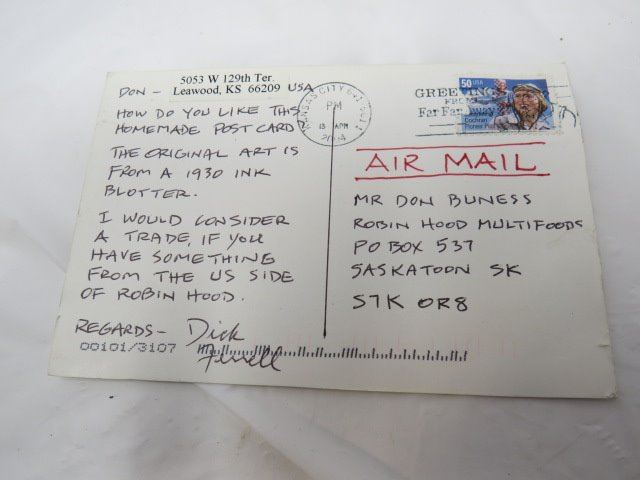 5053 W 129th Ter.
Leawood, KS 66209 USA
DON -
HOW DO YOU LIKE THIS
HOMEMADE POST CARD?
THE ORIGINAL ART IS
FROM A 1930 INK
BLOTTER.
I WOULD CONSIDER
A TRADE, IF YOU
HAVE SOMETHING
FROM THE US SIDE
OF ROBIN HOOD.
REGARDS - Dick
Ferrell
00101/3107
KANSAS CITY
PM
13 APR
2004
GREETINGS
FROM
Far Far Away
50 USA
Cochran
Pioneer Pilot
AIR MAIL
MR DON BUNESS
ROBIN HOOD MULTIFOODS
PO BOX 537
SASKATOON SK
S7K 0R8